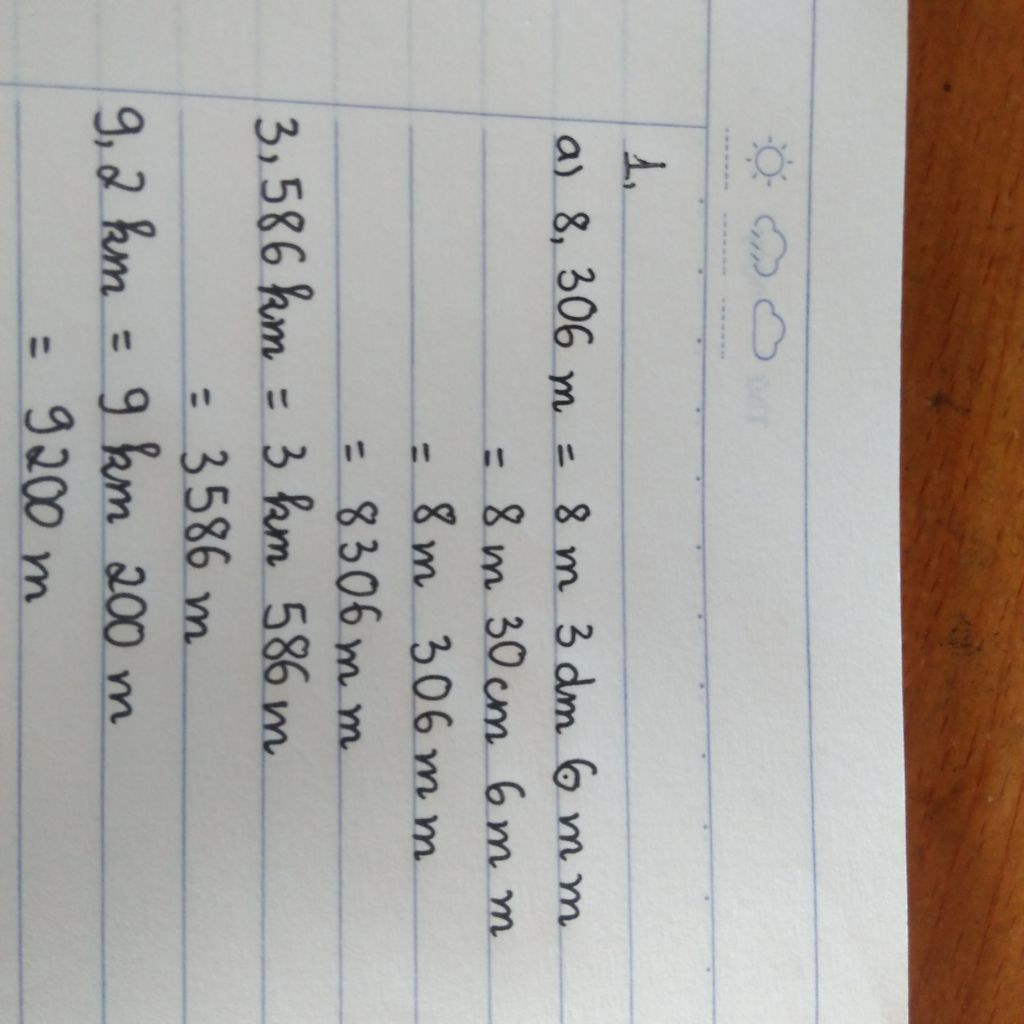 1,
a) 8,306 m = 8 m 3 dm 6 mm
= 8 m 30 cm 6 mm
= 8 m 306 mm
= 8306 mm
3,586 km = 3 km 586 m
= 3586 m
9,2 km = 9 km 200 m
= 9200 m